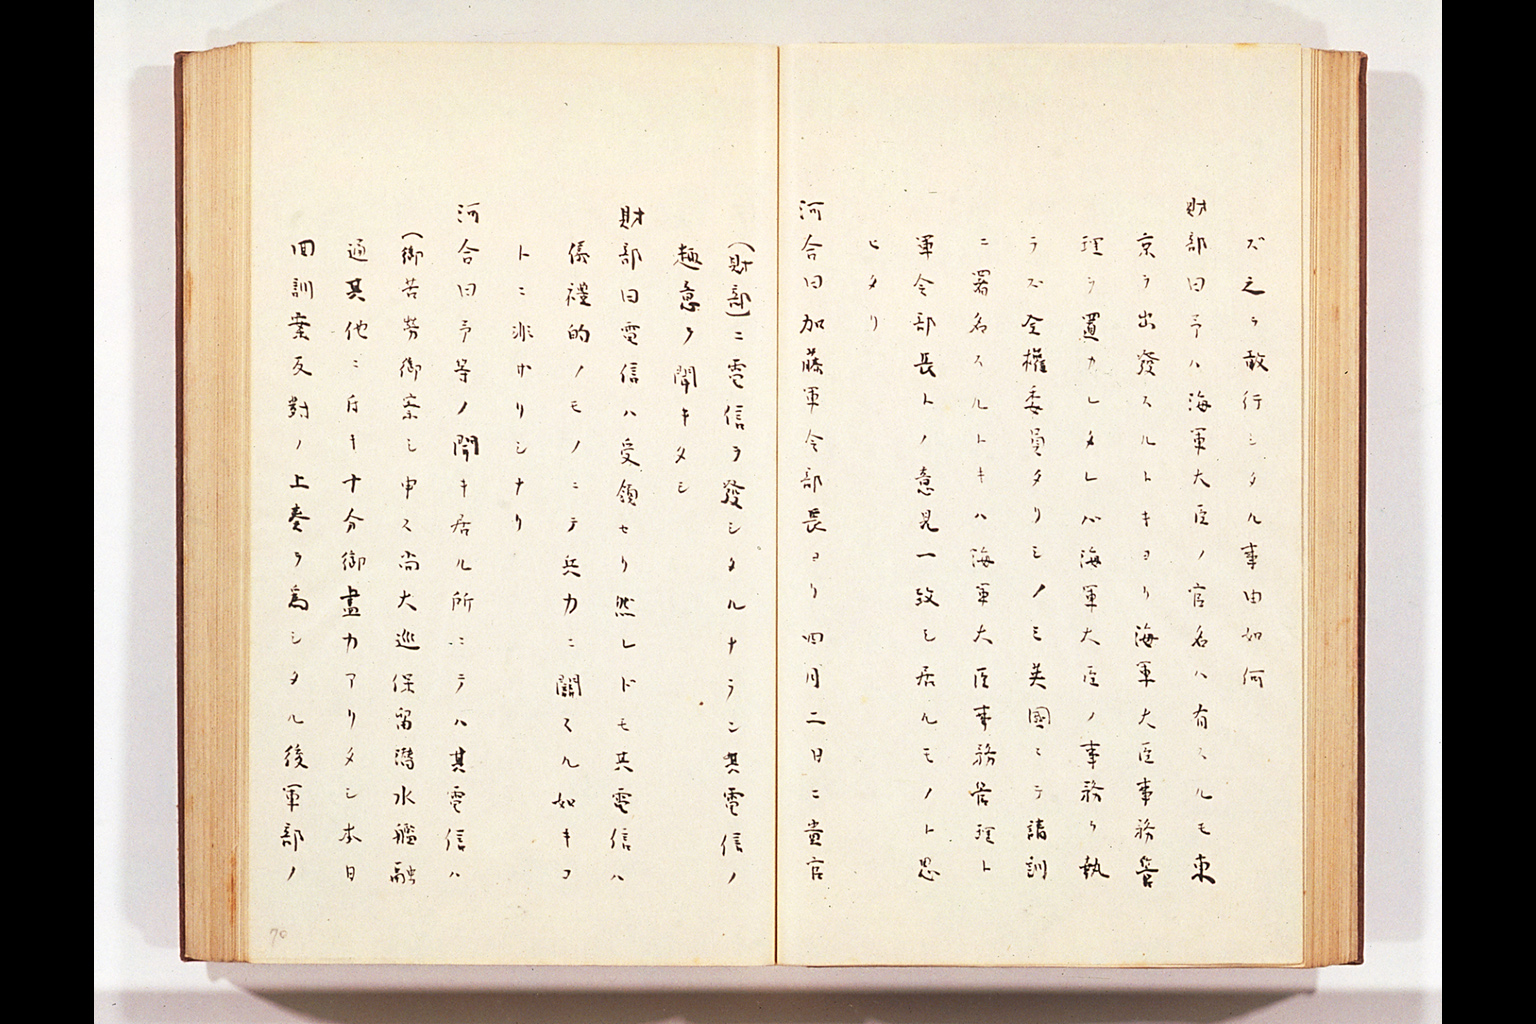 ズ之ヲ敢行シタル事由如何
財部曰予ハ海軍大臣ノ官名ハ有スルモ東
京ヲ出發スルトキヨリ海軍大臣事務管
理ヲ置カレタレバ海軍大臣ノ事務ヲ執
ラズ全權委員タリシノミ英國ニテ請訓
ニ署名スルトキハ海軍大臣事務管理ト
軍令部長トノ意見一致シ居ルモノト思
ヒタリ
河合曰加藤軍令部長ヨリ四月二日ニ貴官
(財部)ニ電信ヲ發シタルナラン其電信ノ
趣意ヲ聞キタシ
財部曰電信ハ受領セリ然レドモ其電信ハ
儀禮的ノモノニテ兵力ニ關スル如キコ
トニ非カリシナリ
河合曰予等ノ聞キ居ル所ニテハ其電信ハ
(御苦労御察シ申ス尚大巡保留潛水艦融
通其他ニ付キ十分御盡力アリタシ本日
回訓案反對ノ上奏ヲ為シタル後軍部ノ
70